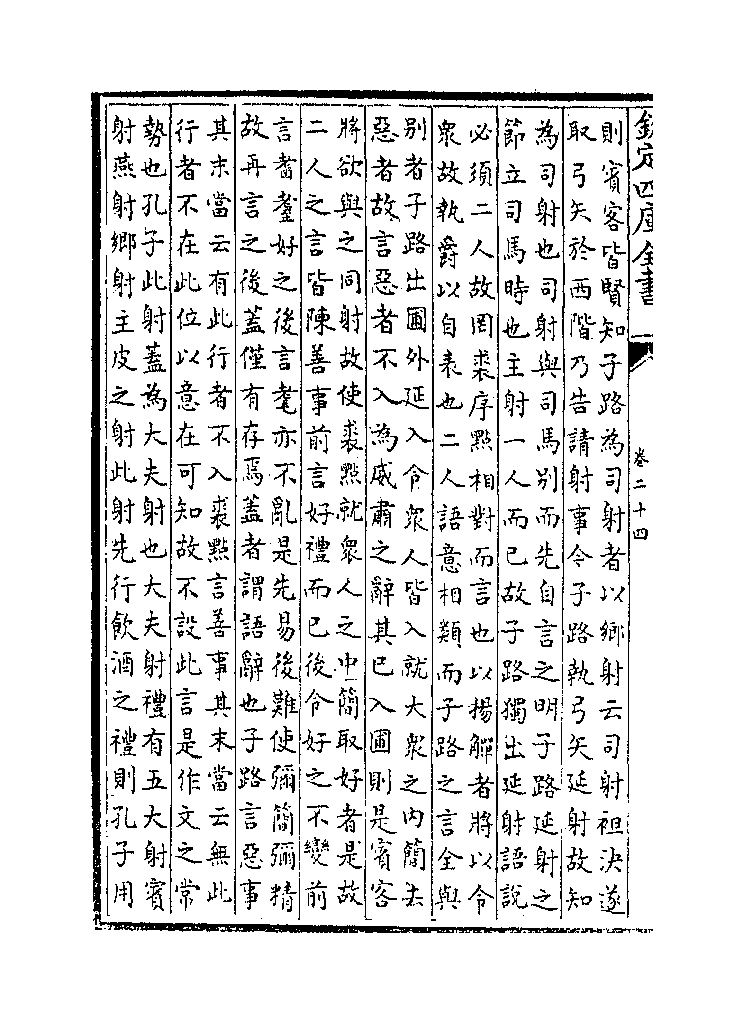 欽定四庫全書
卷二十四
則賓客皆賢知子路為司射者以鄉射云司射袒決遂
取弓矢於西階乃告請射事令子路執弓矢延射故知
為司射也司射與司馬別而先自言之明子路延射之
節立司馬時也主射一人而已故子路獨出延射語說
必須二人故罔裘序點相對而言也以揚觶者將以令
衆故執爵以自表也二人語意相類而子路之言全與
別者子路出圃外延入令衆人皆入就大衆之内簡去
惡者故言惡者不入為威肅之辭其已入圃則是賓客
將欲與之同射故使裘點就衆人之中簡取好者是故
二人之言皆陳善事前言好禮而已後令好之不變前
言耆耋好之後言耄亦不亂是先易後難使彌簡彌精
故再言之後蓋僅有存焉蓋者謂語辭也子路言惡事
其末當云有此行者不入裘點言善事其末當云無此
行者不在此位以意在可知故不設此言是作文之常
勢也孔子此射蓋為大夫射也大夫射禮有五大射賓
射燕射鄉射主皮之射此射先行飲酒之禮則孔子用